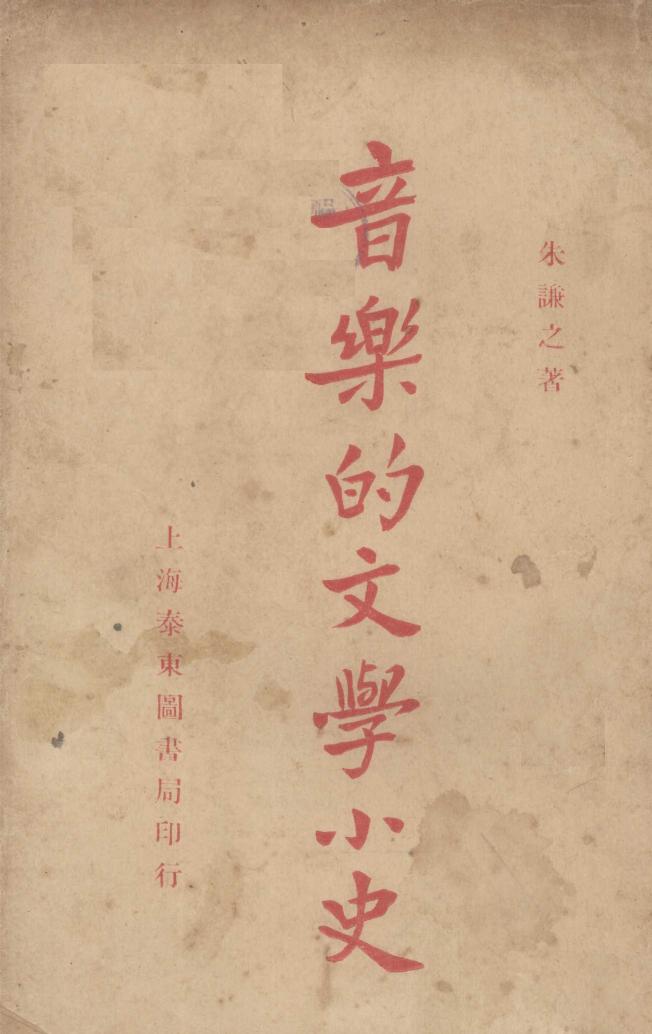 朱謙之著
音樂的文學小史
上海泰東圖書局印行